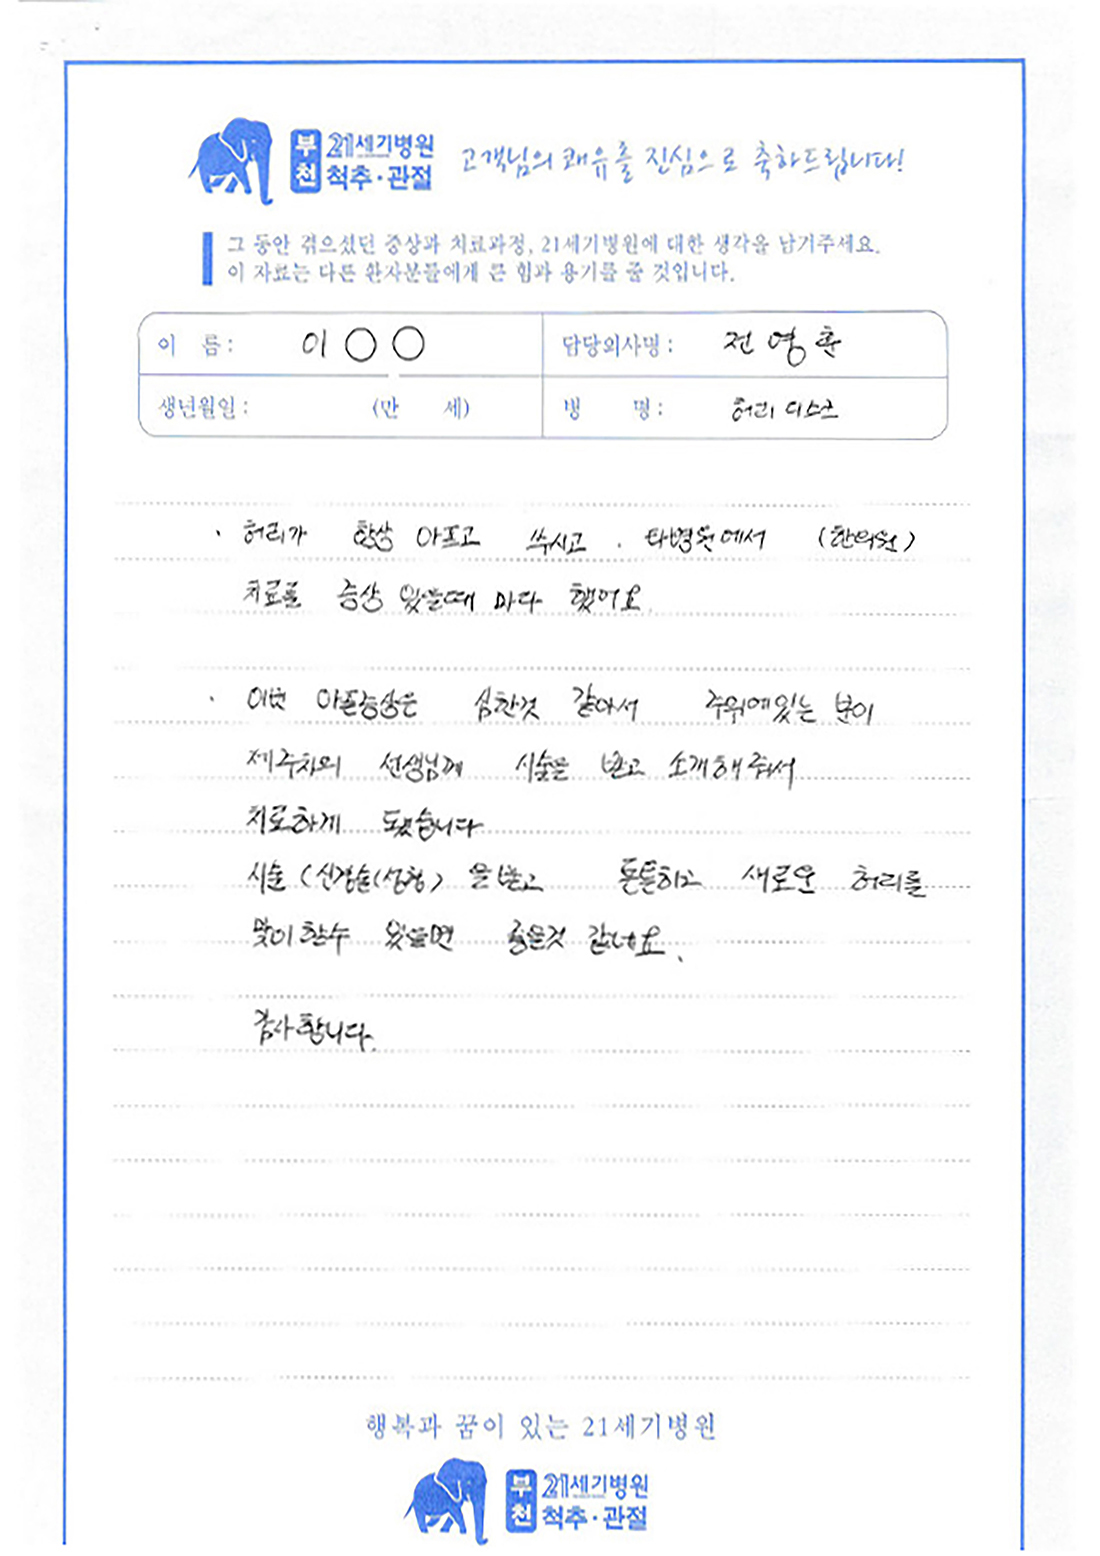 부천 21세기병원 척추·관절 고객님의 쾌유를 진심으로 축하드립니다!
그 동안 겪으셨던 증상과 치료과정, 21세기병원에 대한 생각을 남겨주세요.
이 자료는 다른 환자분들에게 큰 힘과 용기를 줄 것입니다.
이 름 : 이○○ 담당의사명 : 전영훈
생년월일 : (만 세) 병 명 : 허리 디스크
· 허리가 항상 아프고 쑤시고 . 타병원에서 (한의원)
치료를 증상 있을때 마다 했어요.
· 이번 아픔증상은 심한것 같아서 주위에있는 분이
선생님께 시술을 받고 소개해 주셔서
치료하게 되었습니다
시술 (신경술(성형) 을 받고 튼튼하고 새로운 허리를
맞이 할수 있으면 좋을것 같네요.
감사합니다.
행복과 꿈이 있는 21세기병원
부천 21세기병원 척추·관절